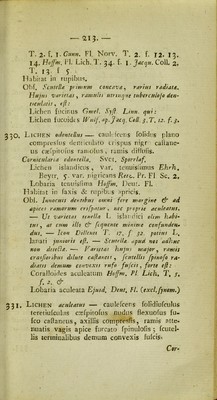 — 213. —
T. 2. f. 1. Gunn. Fl. Norv. T. 2. f. 12. 13.
14. Hoffm. Pl. Lich. T. 34. f. 1. Jacqu. Coll. 2.
T. 13. f. 5.
Habitat in rupibus.
Obs. Scutella primum concava, rarius radiata.
Hujus varietas, ramulis utrinque tuberculoso den-
ticulatis, est:
Lichen fucinus Gmel. Syst. Linn. qui:
Lichen fucoides Wulf. ap. Jacq. Coll. 3. T. 12. f. 3.
330. LICHEN odontellus — caulescens solidus plano
compressus denticulato crispus nigricastane-
us cæspitosus ramosus, ramis diffusis.
Cornicularia odontella. Svet. Sporlas.
Lichen islandicus, var. tenuissimus Ehrh.
Beytr. 5. var. nigricans Retz. Pr. Fl. Sc. 2.
Lobaria tenuissima Hoffm. Deut. Fl.
Habitat in saxis & rupibus apricis.
Obs. Innocens dentibus omni fere margine & ad
apices ramorum conspicuus, nec proprie aculeatus.
— Ut varietas tenella L. islandici olim habi-
tus, at cum illo & sequente minime confunden-
dus. — Icon Dillenii T. 17. f. 32. potius L.
lanati junioris est. — Scutella apud nos adhuc
non detecta. — Varietas hujus major, ramis
crassioribus dilute castaneis, scutellis spinoso ra-
diatis demum convexis rufo fuscis, forte est:
Coralloides aculeatum Hoffm. Pl. Lich. T. 5.
f. 2. &
Lobaria aculeata Ejusd. Deut. Fl. (excl. synon.)
331. LICHEN aculeatus — caulescens solidiusculus
teretiusculus cæspitosus nudus flexuosus fu-
sco castaneus, axillis compressis, ramis atte-
nuatis vagis apice furcato spinulosis; scutel-
lis terminalibus demum convexis fuscis.
Cor-